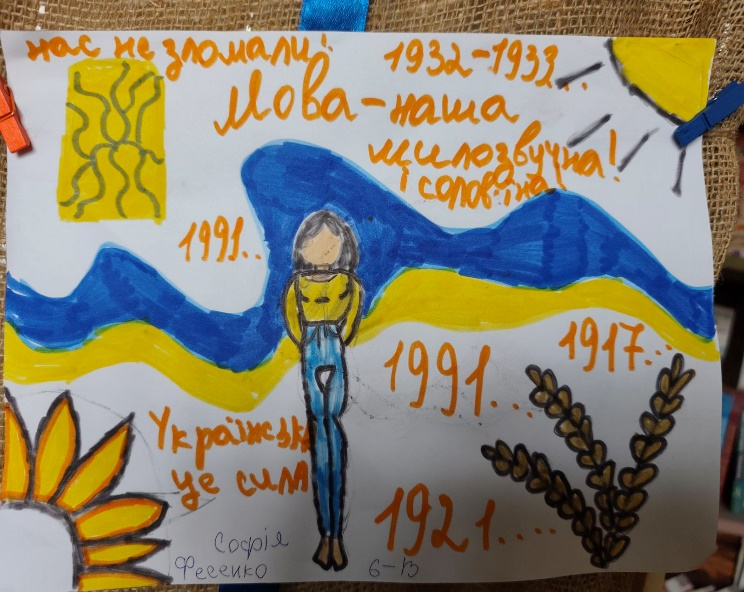 нас не зломали!
1932-1933...
Мова-наша
милозвучна!
і солов'їна
1991..
1917...
1991....
Українська
це сила
1921....
Софія
Фесенко 6-В